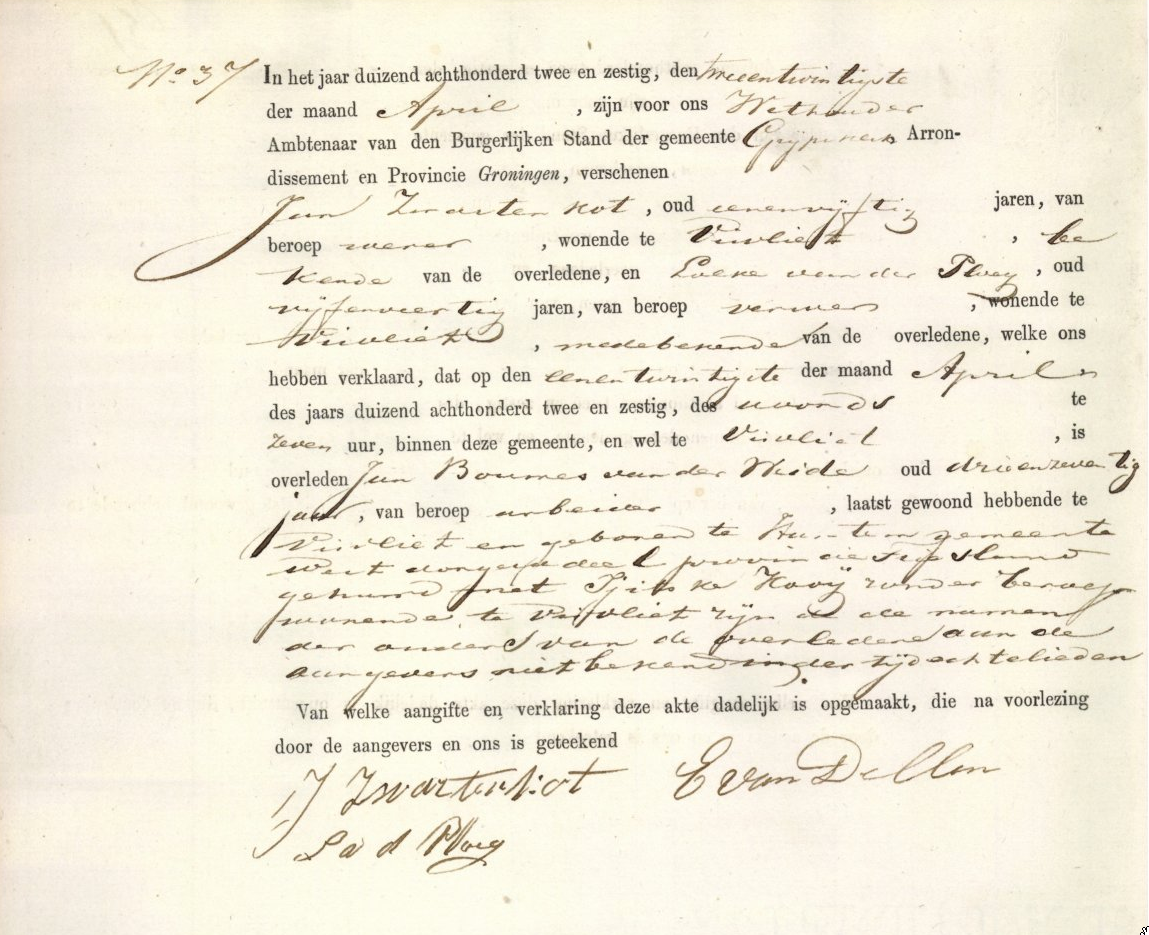 No 37
In het jaar duizend achthonderd twee en zestig, den tweeentwintigste
der maand April , zijn voor ons Wethouder
Ambtenaar van den Burgerlijken Stand der gemeente Grijpskerk Arron-
dissement en Provincie Groningen, verschenen
Jan Zwartenkot , oud eenenvijftig jaren, van
beroep wever , wonende te Visvliet , be
kende van de overledene, en Loeke van der Ploeg , oud
vijfenveertig jaren, van beroep verwer , wonende te
Visvliet , medebekende van de overledene, welke ons
hebben verklaard, dat op den eenentwintigste der maand April
des jaars duizend achthonderd twee en zestig, des avonds te
zeven uur, binnen deze gemeente, en wel te Visvliet , is
overleden Jan Boumes van der Heide oud drieenzeventig
jaar, van beroep arbeider , laatst gewoond hebbende te
Visvliet en geboren te gemeente
West dongeradeel provincie Friesland
gehuwd met Tjitske Kooij zonder beroep
wonende te Visvliet zijn de namen
der ouders van de overledene aan de
aangevers niet bekend in der tijd echtelieden
Van welke aangifte en verklaring deze akte dadelijk is opgemaakt, die na voorlezing
door de aangevers en ons is geteekend
J Zwartenkot E van Dellen
L v d Ploeg